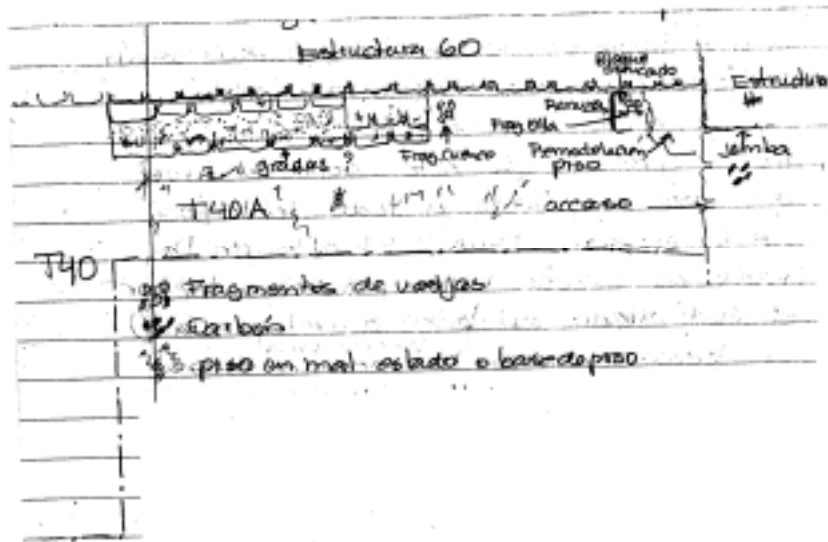 Estructura 60
Bloque
Estucado
Estructura
Ranura
Frag. Olla
Frag. Cuenco
Remodelación
piso
Jamba
gradas ?
T40A
acceso
T40
Fragmentos de vasijas
Carbón
piso en mal estado o base de piso